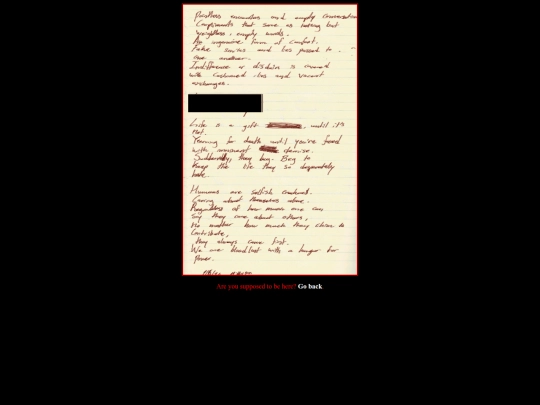 and empty
Compliments that serve as nothing but
weightless, empty words.
No form of comfort.
Fake smiles and passed to
one another.
Indifference or disdain is
with and vacant
exchanges.
Life is a gift, until it's
not.
Yearning for death until you're faced
with demise.
Suddenly, they beg. Beg to
keep the life they so desperately
hate.
Humans are selfish creatures.
Caring about themselves alone.
Regardless of how much one can
say they care about others,
No matter how much they chose to
contribute,
They always come first.
We are with a hunger for
Power.
Are you supposed to be here? Go back